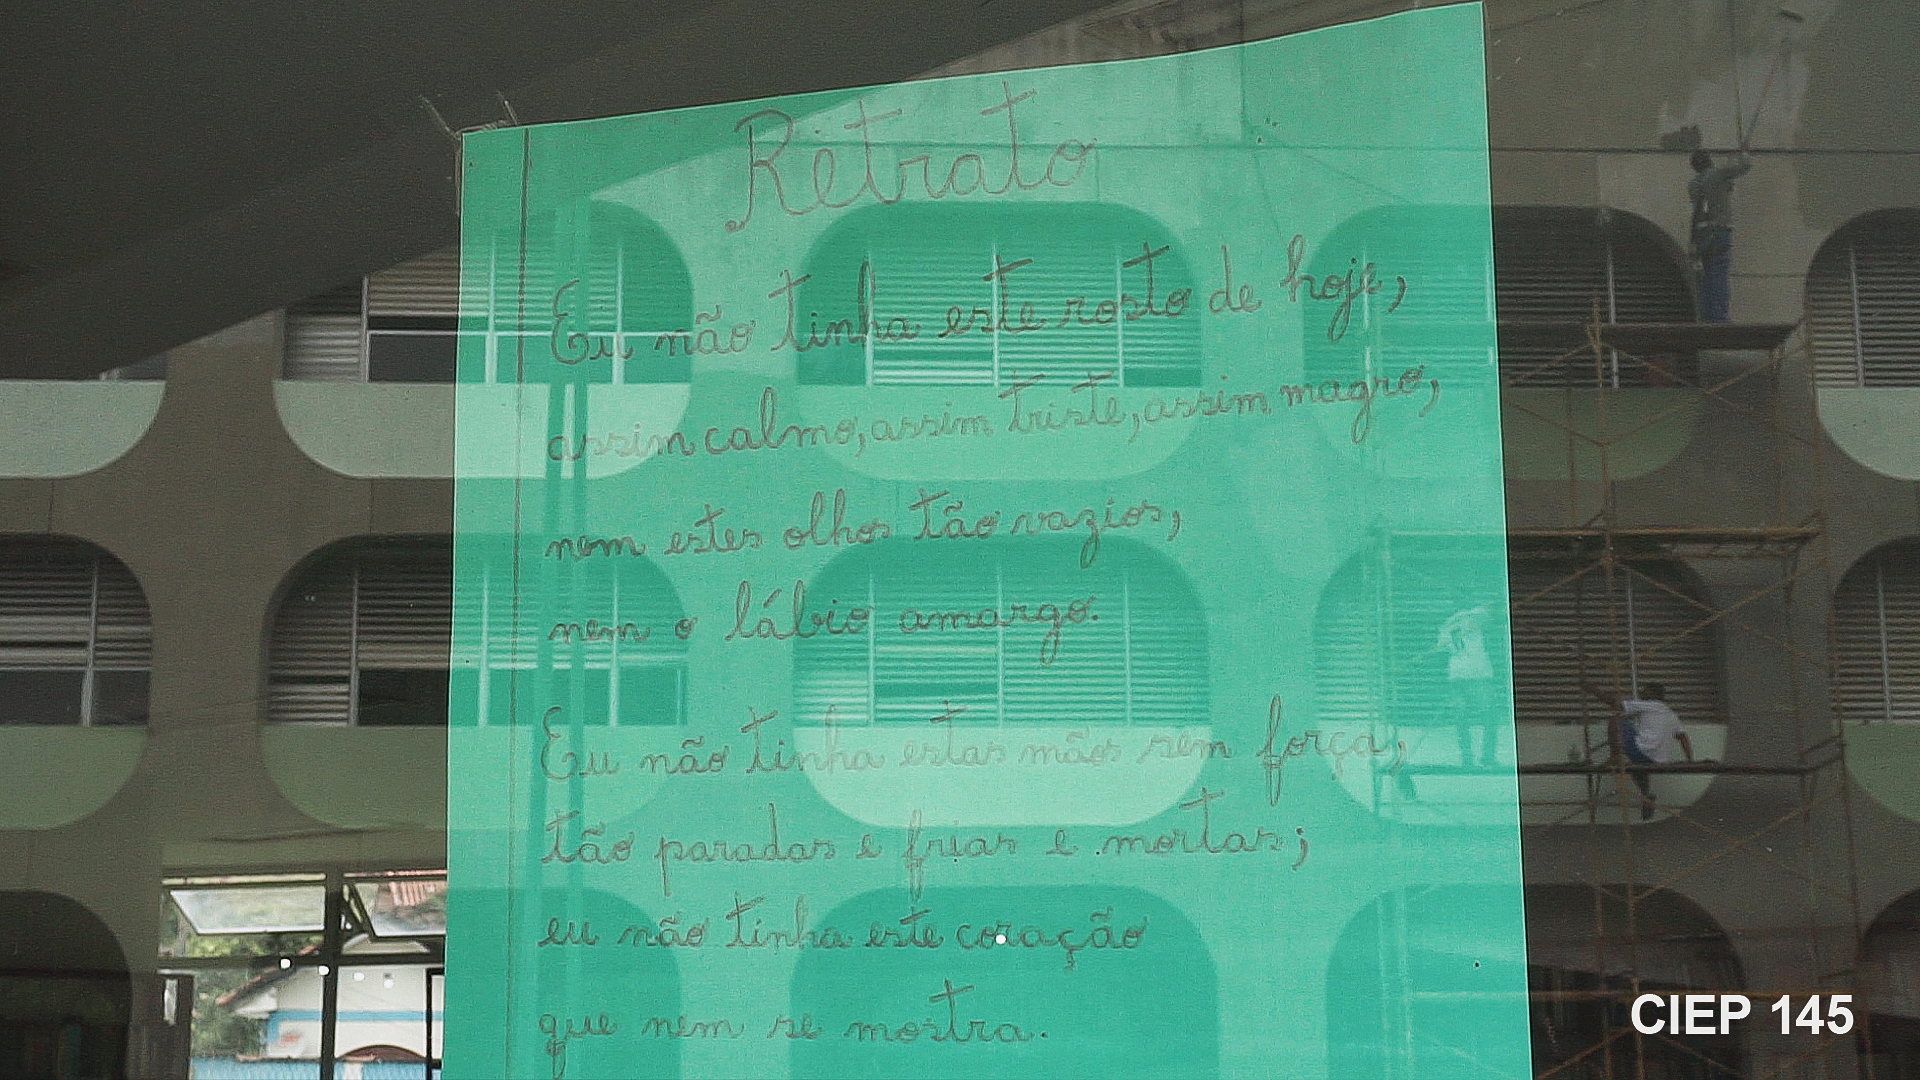 Retrato
Eu não tinha este rosto de hoje,
assim calmo, assim triste, assim magro,
nem estes olhos tão vazios,
nem o lábio amargo.
Eu não tinha estas mãos sem força,
tão paradas e frias e mortas;
eu não tinha este coração
que nem se mostra.
CIEP 145